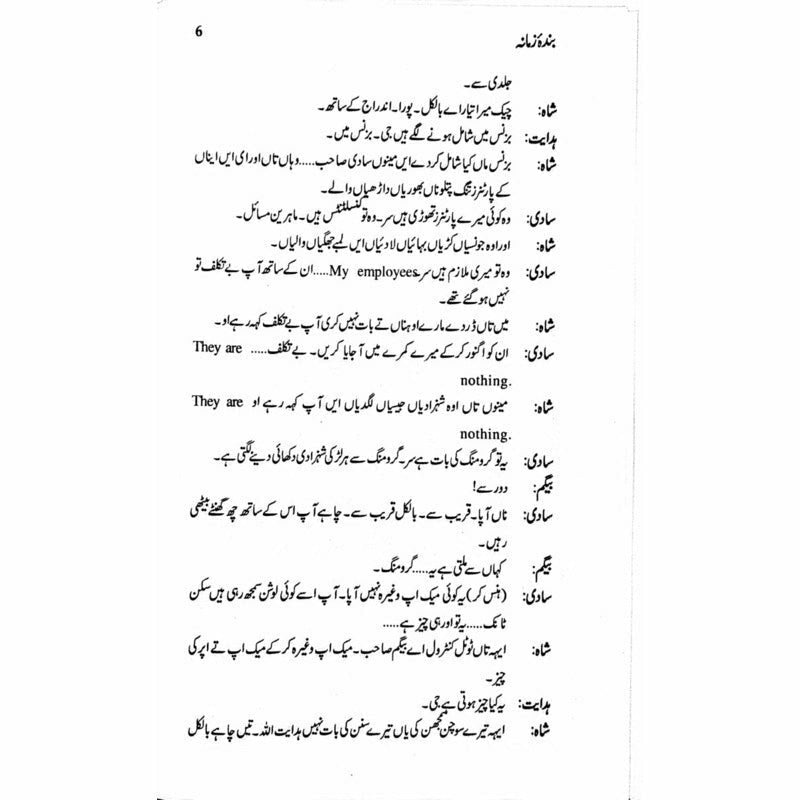 بندۂ زمانہ 6
جلدی سے۔
شاہ: چیک میرا تیار اے بالکل۔ پورا۔ اندراج کے ساتھ۔
ہدایت: بزنس میں شامل ہونے لگے ہیں جی۔ بزنس میں۔
شاہ: بزنس ماں کیا شامل کر دے ایں مینوں سادی صاحب.....وہاں تاں اورای ایس ایناں
کے پارٹنرز تنگ پتلوناں بھوریاں داڑھیاں والے۔
سادی: وہ کوئی میرے پارٹنرز تھوڑی ہیں سر۔ وہ تو کنسلٹنٹس ہیں۔ ماہرین مسائل۔
شاہ: اور اوہ جونسیاں کڑیاں بہائیاں لادئیاں ایں لمبے جھگیاں والیاں۔
سادی: وہ تو میری ملازم ہیں سر My employees.....ان کے ساتھ آپ بے تکلف تو
نہیں ہو گئے تھے۔
شاہ: میں تاں ڈر دے مارے اوہناں تے بات نہیں کری آپ بے تکلف کہہ رہے او۔
سادی: ان کو اگنور کر کے میرے کمرے میں آ جایا کریں۔ بے تکلف..... They are
nothing.
شاہ: مینوں تاں اوہ شہزادیاں جیسیاں لگدیاں ایں آپ کہہ رہے او They are
nothing.
سادی: یہ تو گرومنگ کی بات ہے سر۔ گرومنگ سے ہر لڑکی شہزادی دکھائی دینے لگتی ہے۔
بیگم: دور سے!
سادی: ناں آپا۔ قریب سے۔ بالکل قریب سے۔ چاہے آپ اس کے ساتھ چھ گھنٹے بیٹھی
رہیں۔
بیگم: کہاں سے ملتی ہے یہ.....گرومنگ۔
سادی: (ہنس کر) یہ کوئی میک اپ وغیرہ نہیں آپا۔ آپ اسے کوئی لوشن سمجھ رہی ہیں سکن
ٹانک.....یہ تو اور ہی چیز ہے.....
شاہ: ایہہ تاں ٹوٹل کنٹرول اے بیگم صاحب۔ میک اپ وغیرہ کر کے میک اپ تے اپر کی
چیز۔
ہدایت: یہ کیا چیز ہوتی ہے جی۔
شاہ: ایہہ تیرے سوچن سمجھن کی یاں تیرے سنن کی بات نہیں ہدایت اللہ۔ تیں چاہے بالکل